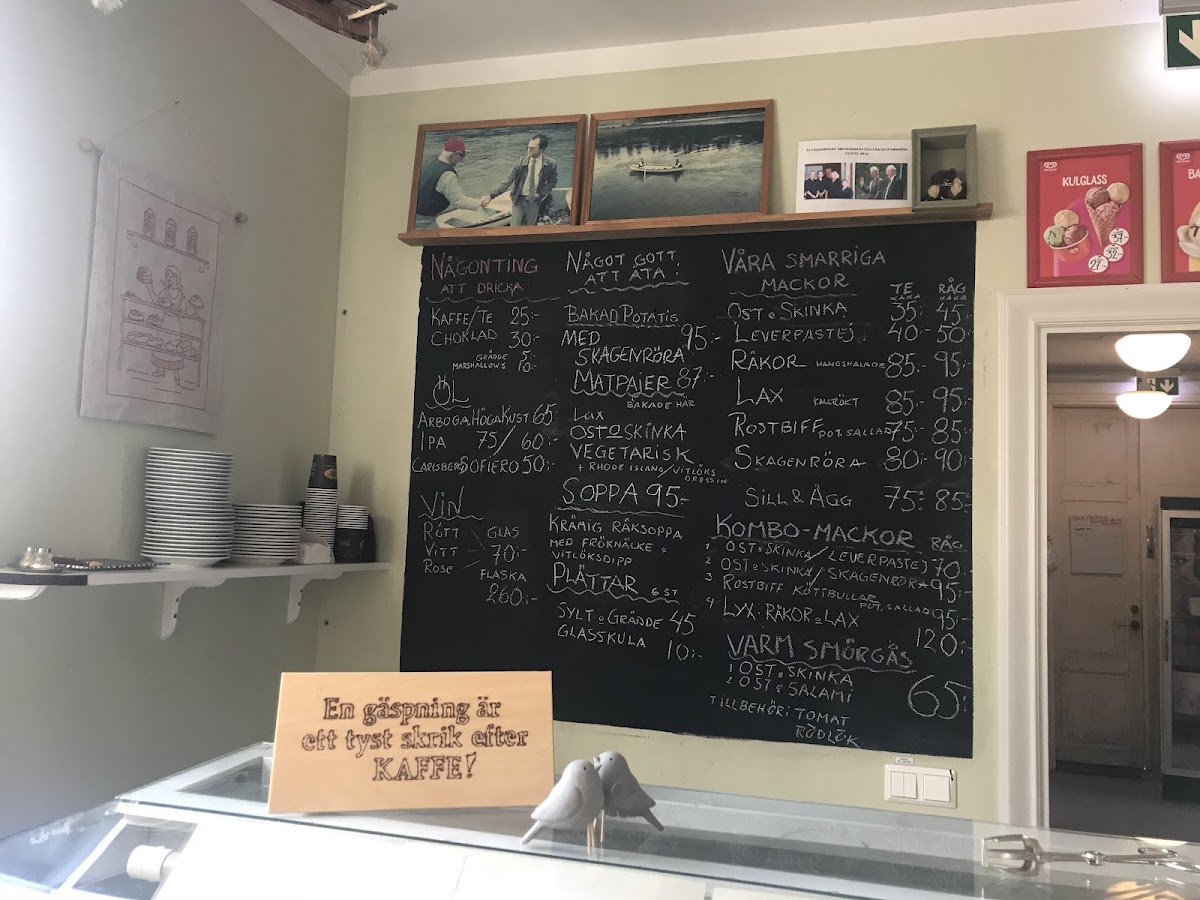 NÅGONTING
ATT DRICKA
KAFFE/TE 25:-
CHOKLAD 30:-
GRÄDDE 5:-
MARSHALLOWS 10:-
ÖL
ARBOGA HÖGA KUST 65:-
IPA 75/60:-
CARLSBERG SOFIERO 50:-
VIN
RÖTT GLAS
VITT 70:-
ROSE FLASKA
260:-
NÅGOT GOTT
ATT ÄTA!
BAKAD POTATIS
MED 95:-
SKAGENRÖRA
MATPAJER 87:-
BAKADE HÄR
LAX
OST O SKINKA
VEGETARISK
+ RHODE ISLAND/VITLÖKS
DRESSIN
SOPPA 95:-
KRÄMIG RÄKSOPPA
MED FRÖKNÄCKE +
VITLÖKSDIPP
PLÄTTAR 6 ST
SYLT O GRÄDDE 45
GLASSKULA 10:-
VÅRA SMARRIGA
MACKOR
TE KAKA RÅG KAKA
OST O SKINKA 35:- 45:-
LEVERPASTEJ 40:- 50:-
RÄKOR HANDSKALADE 85:- 95:-
LAX KALLRÖKT 85:- 95:-
ROSTBIFF POT.SALLAD 75:- 85:-
SKAGENRÖRA 80:- 90:-
SILL & ÄGG 75:- 85:-
KOMBO-MACKOR RÅG
1 OST O SKINKA/LEVERPASTEJ 70:-
2 OST O SKINKA/SKAGENRÖRA 95:-
3 ROSTBIFF KÖTTBULLAR POT.SALLAD 95:-
4 LYX: RÄKOR O LAX 120:-
VARM SMÖRGÅS
1 OST O SKINKA
2 OST O SALAMI 65:-
TILLBEHÖR: TOMAT
RÖDLÖK
KULGLASS
32:-
BA
En gäspning är
ett tyst skrik efter
KAFFE!